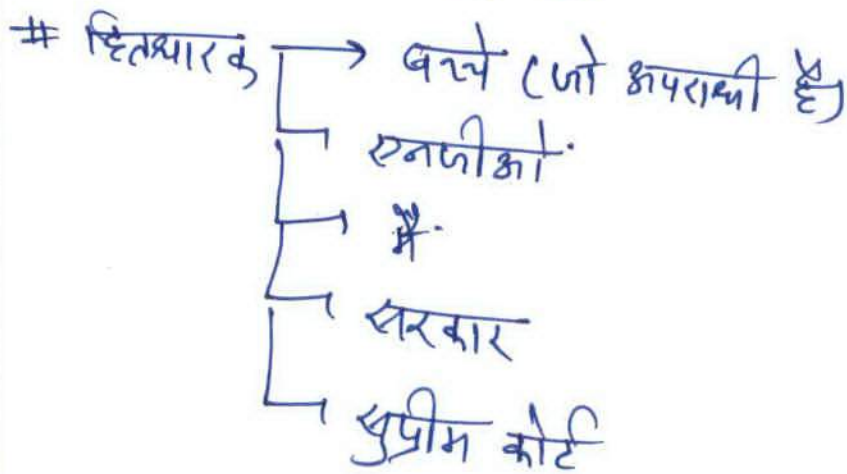 # हितधारक → बच्चे (जो अपराधी है)
एनजीओ.
मैं.
सरकार
सुप्रीम कोर्ट